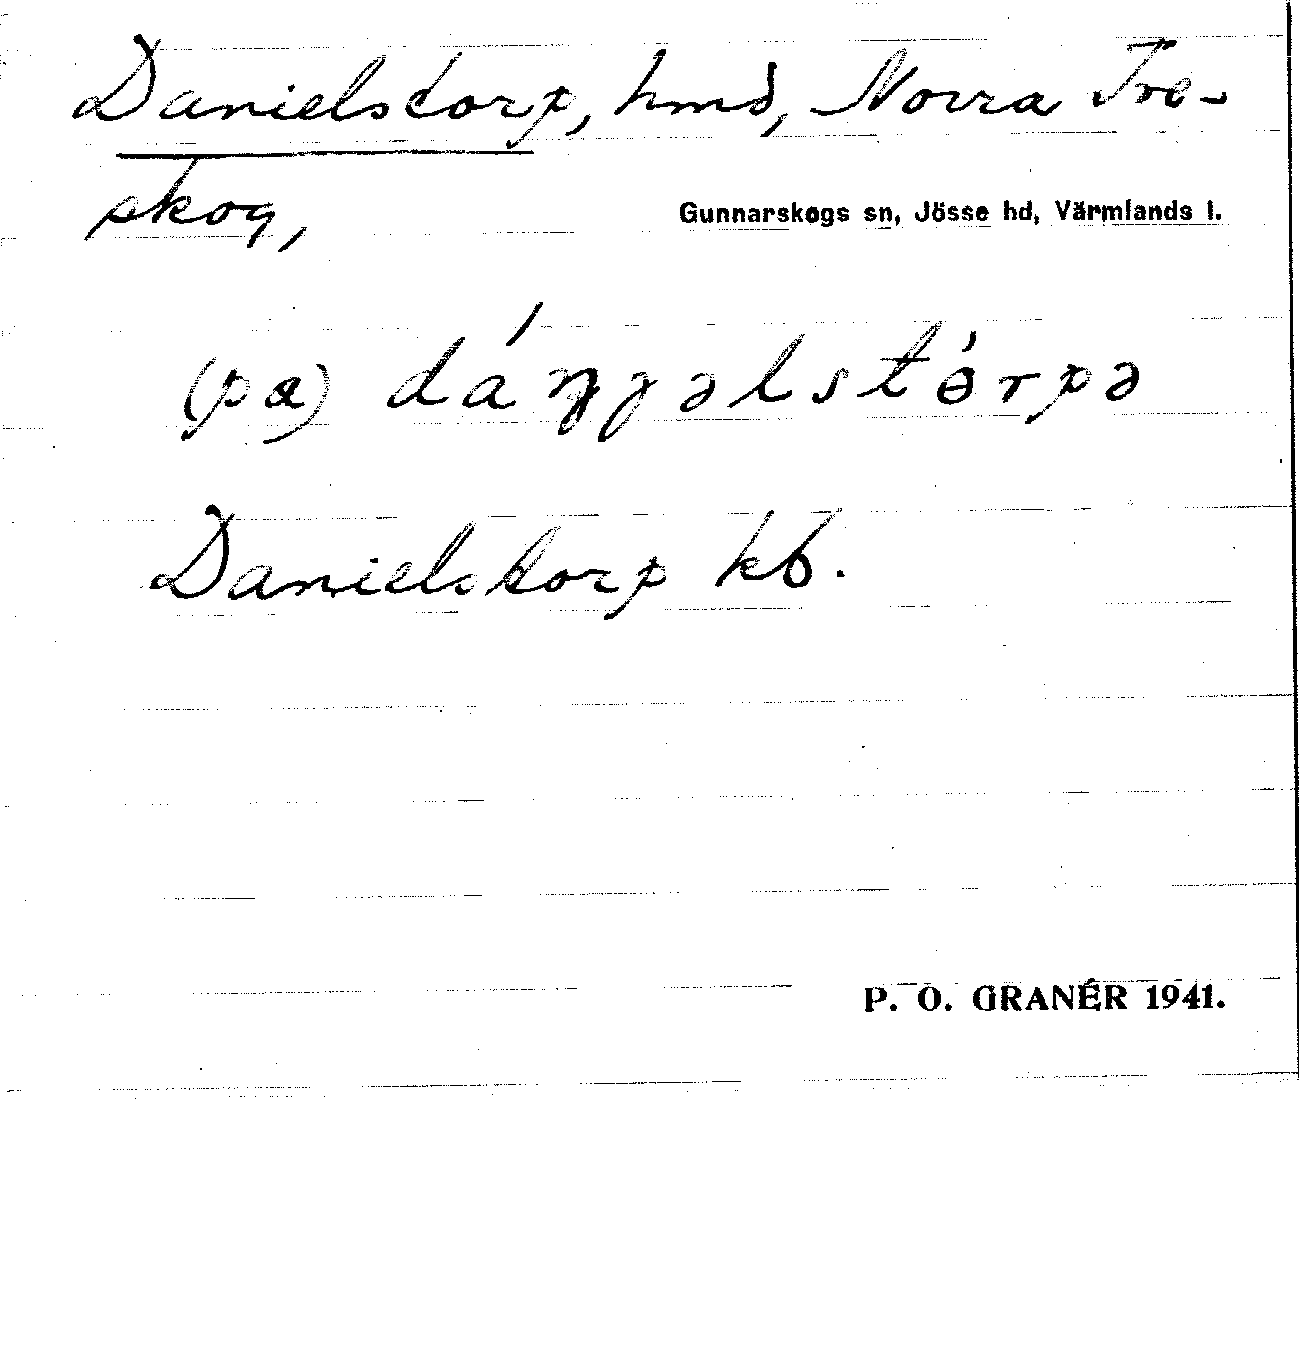 Danielstorp, hmd, Norra Tre-
skog,
Gunnarskogs sn, Jösse hd, Värmlands l.
Danielstorp kb.
P. O. GRANÉR 1941.